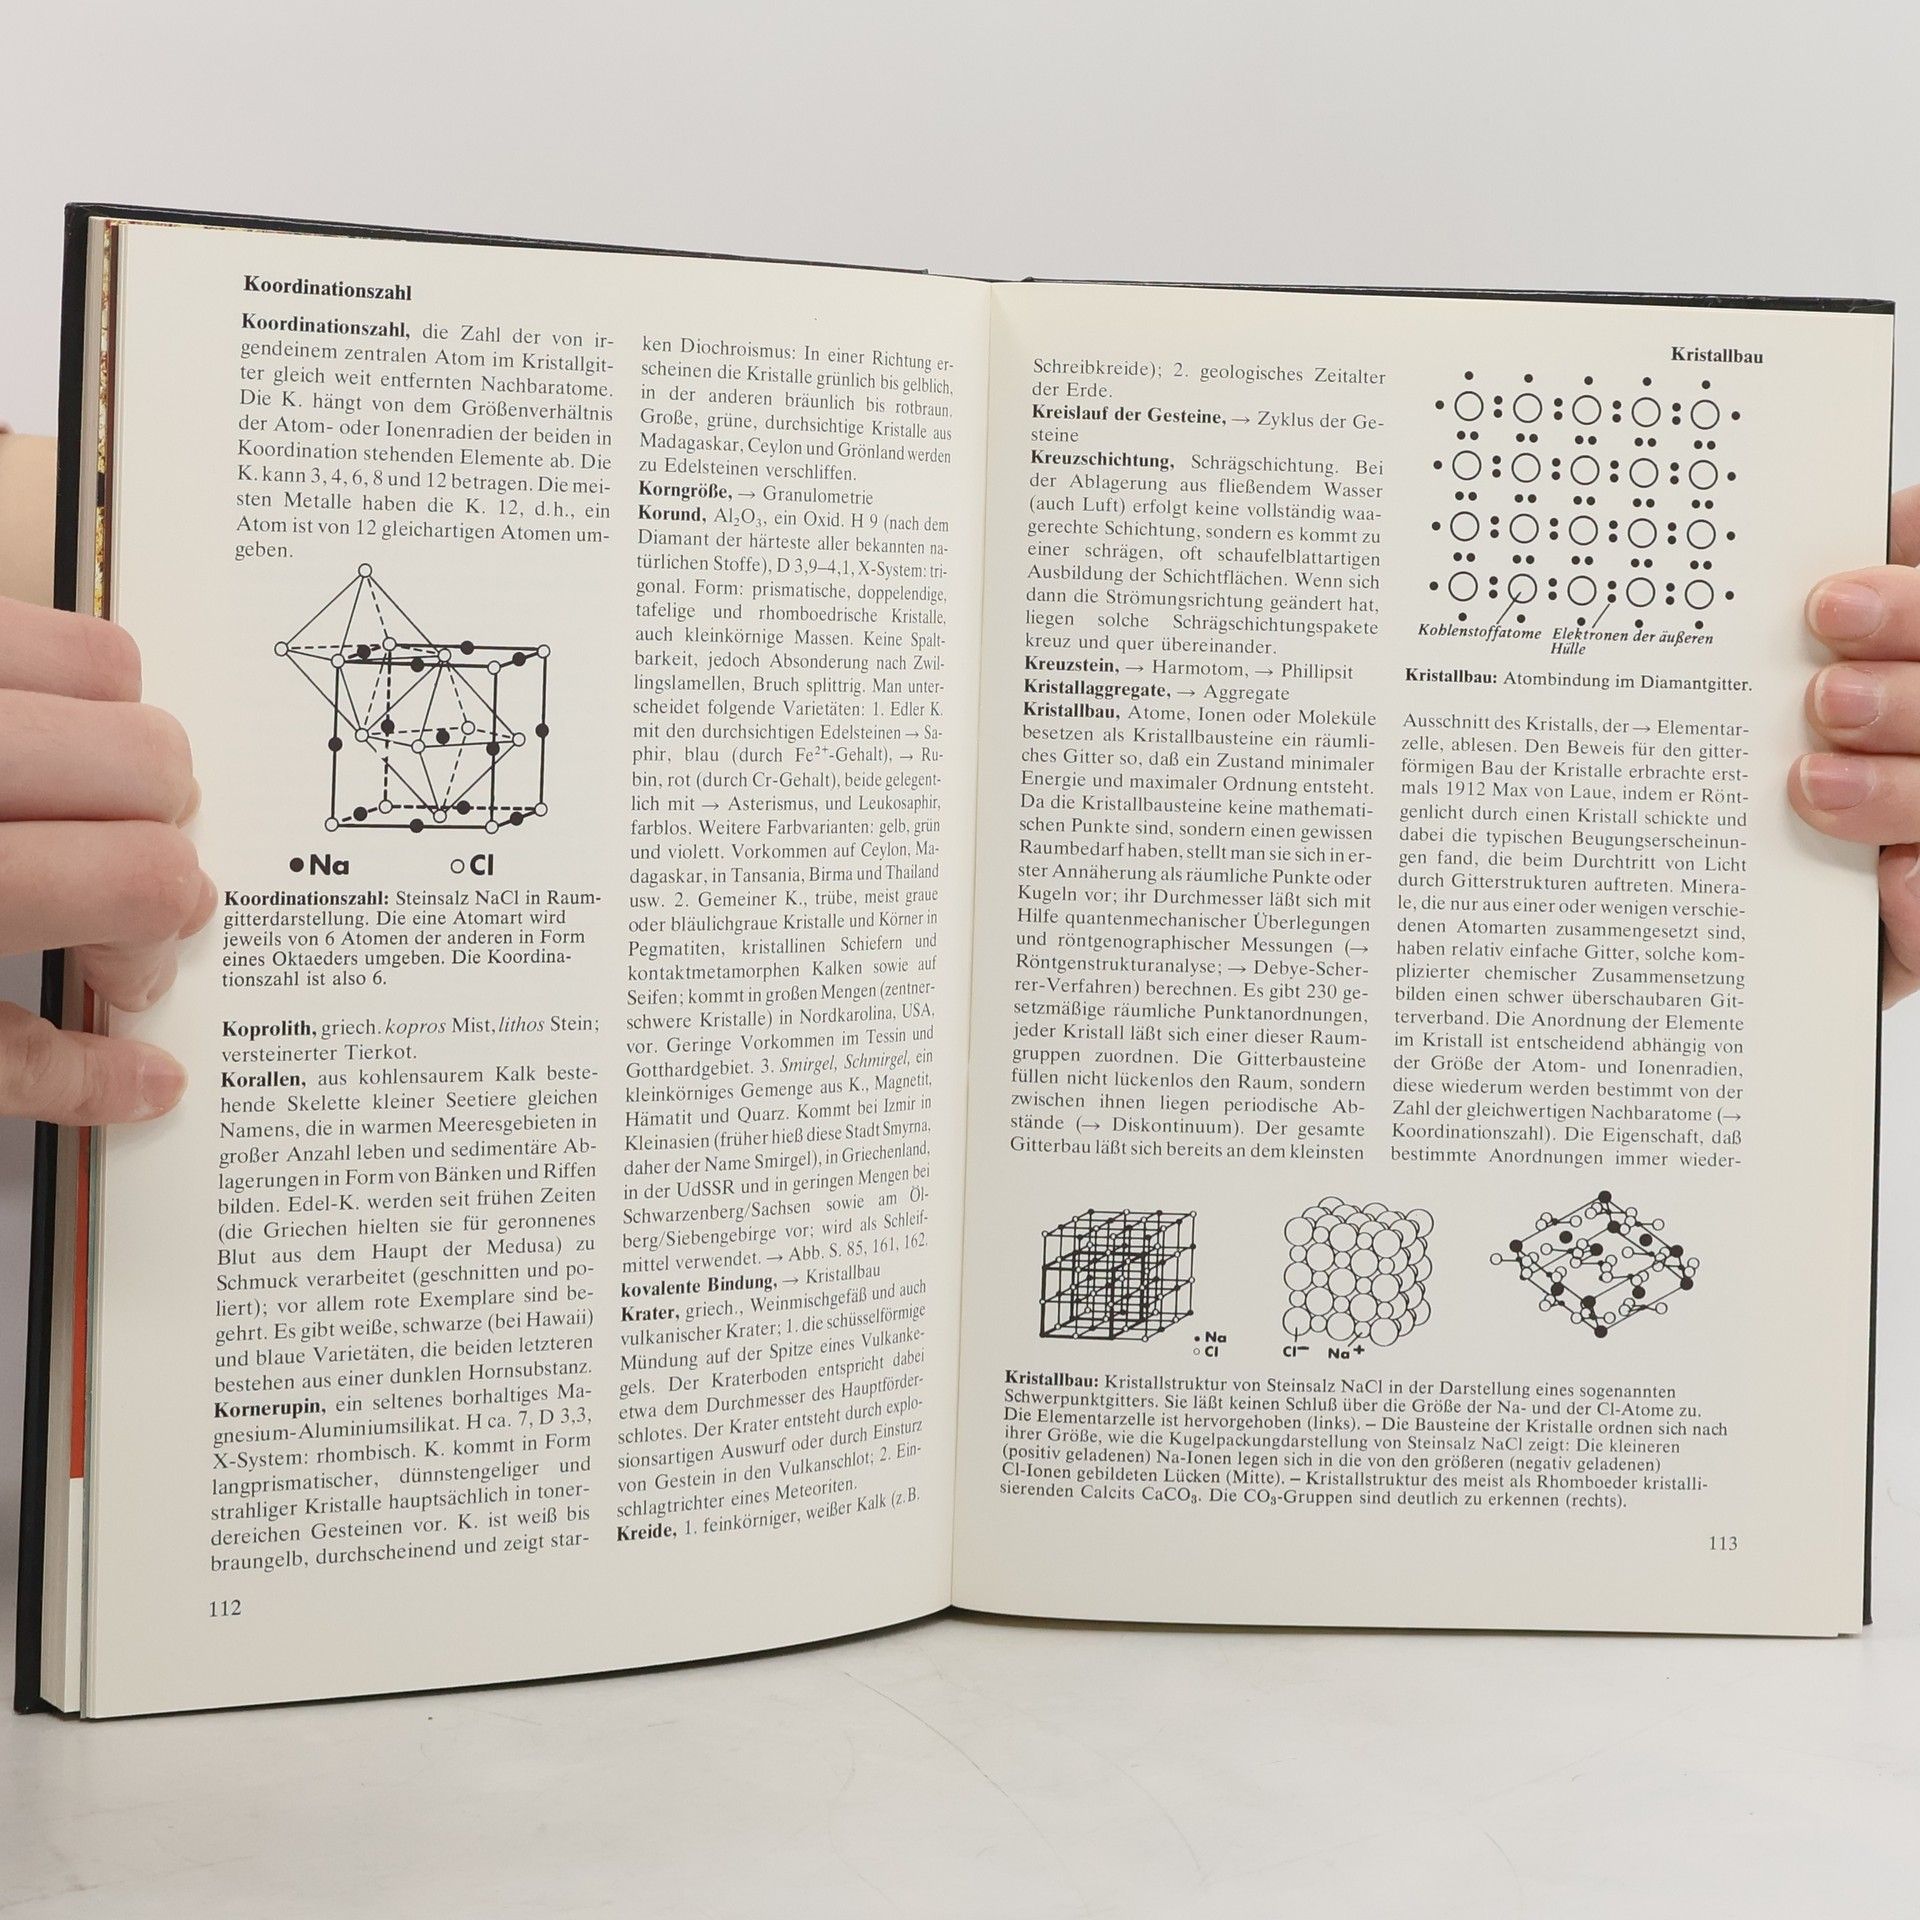 Koordinationszahl
Koordinationszahl, die Zahl der von ir-
gendeinem zentralen Atom im Kristallgit-
ter gleich weit entfernten Nachbaratome.
Die K. hängt von dem Größenverhältnis
der Atom- oder Ionenradien der beiden in
Koordination stehenden Elemente ab. Die
K. kann 3, 4, 6, 8 und 12 betragen. Die mei-
sten Metalle haben die K. 12, d.h., ein
Atom ist von 12 gleichartigen Atomen um-
geben.
Na
Cl
Koordinationszahl: Steinsalz NaCl in Raum-
gitterdarstellung. Die eine Atomart wird
jeweils von 6 Atomen der anderen in Form
eines Oktaeders umgeben. Die Koordina-
tionszahl ist also 6.
Koprolith, griech. kopros Mist, lithos Stein;
versteinerter Tierkot.
Korallen, aus kohlensaurem Kalk beste-
hende Skelette kleiner Seetiere gleichen
Namens, die in warmen Meeresgebieten in
großer Anzahl leben und sedimentäre Ab-
lagerungen in Form von Bänken und Riffen
bilden. Edel-K. werden seit frühen Zeiten
(die Griechen hielten sie für geronnenes
Blut aus dem Haupt der Medusa) zu
Schmuck verarbeitet (geschnitten und po-
liert); vor allem rote Exemplare sind be-
gehrt. Es gibt weiße, schwarze (bei Hawaii)
und blaue Varietäten, die beiden letzteren
bestehen aus einer dunklen Hornsubstanz.
Kornerupin, ein seltenes borhaltiges Ma-
gnesium-Aluminiumsilikat. H ca. 7, D 3,3,
X-System: rhombisch. K. kommt in Form
langprismatischer, dünnstengeliger und
strahliger Kristalle hauptsächlich in toner-
dereichen Gesteinen vor. K. ist weiß bis
braungelb, durchscheinend und zeigt star-
112
ken Diochroismus: In einer Richtung er-
scheinen die Kristalle grünlich bis gelblich,
in der anderen bräunlich bis rotbraun.
Große, grüne, durchsichtige Kristalle aus
Madagaskar, Ceylon und Grönland werden
zu Edelsteinen verschliffen.
Korngröße, → Granulometrie
Korund, Al₂O₃, ein Oxid. H 9 (nach dem
Diamant der härteste aller bekannten na-
türlichen Stoffe), D 3,9–4,1, X-System: tri-
gonal. Form: prismatische, doppelendige,
tafelige und rhomboedrische Kristalle,
auch kleinkörnige Massen. Keine Spalt-
barkeit, jedoch Absonderung nach Zwil-
lingslamellen, Bruch splittrig. Man unter-
scheidet folgende Varietäten: 1. Edler K.
mit den durchsichtigen Edelsteinen → Sa-
phir, blau (durch Fe²⁺-Gehalt), → Ru-
bin, rot (durch Cr-Gehalt), beide gelegent-
lich mit → Asterismus, und Leukosaphir,
farblos. Weitere Farbvarianten: gelb, grün
und violett. Vorkommen auf Ceylon, Ma-
dagaskar, in Tansania, Birma und Thailand
usw. 2. Gemeiner K., trübe, meist graue
oder bläulichgraue Kristalle und Körner in
Pegmatiten, kristallinen Schiefern und
kontaktmetamorphen Kalken sowie auf
Seifen; kommt in großen Mengen (zentner-
schwere Kristalle) in Nordkarolina, USA,
vor. Geringe Vorkommen im Tessin und
Gotthardgebiet. 3. Smirgel, Schmirgel, ein
kleinkörniges Gemenge aus K., Magnetit,
Hämatit und Quarz. Kommt bei Izmir in
Kleinasien (früher hieß diese Stadt Smyrna,
daher der Name Smirgel), in Griechenland,
in der UdSSR und in geringen Mengen bei
Schwarzenberg/Sachsen sowie am Öl-
berg/Siebengebirge vor; wird als Schleif-
mittel verwendet. → Abb. S. 85, 161, 162.
kovalente Bindung, → Kristallbau
Krater, griech., Weinmischgefäß und auch
vulkanischer Krater; 1. die schüsselförmige
Mündung auf der Spitze eines Vulkanke-
gels. Der Kraterboden entspricht dabei
etwa dem Durchmesser des Hauptförder-
schlotes. Der Krater entsteht durch explo-
sionsartigen Auswurf oder durch Einsturz
von Gestein in den Vulkanschlot; 2. Ein-
schlagtrichter eines Meteoriten.
Kreide, 1. feinkörniger, weißer Kalk (z.B.
Kristallbau
Schreibkreide); 2. geologisches Zeitalter
der Erde.
Kreislauf der Gesteine, → Zyklus der Ge-
steine
Kreuzschichtung, Schrägschichtung. Bei
der Ablagerung aus fließendem Wasser
(auch Luft) erfolgt keine vollständig waa-
gerechte Schichtung, sondern es kommt zu
einer schrägen, oft schaufelblattartigen
Ausbildung der Schichtflächen. Wenn sich
dann die Strömungsrichtung geändert hat,
liegen solche Schrägschichtungspakete
kreuz und quer übereinander.
Kreuzstein, → Harmotom, → Phillipsit
Kristallaggregate, → Aggregate
Kristallbau, Atome, Ionen oder Moleküle
besetzen als Kristallbausteine ein räumli-
ches Gitter so, daß ein Zustand minimaler
Energie und maximaler Ordnung entsteht.
Da die Kristallbausteine keine mathemati-
schen Punkte sind, sondern einen gewissen
Raumbedarf haben, stellt man sie sich in er-
ster Annäherung als räumliche Punkte oder
Kugeln vor; ihr Durchmesser läßt sich mit
Hilfe quantenmechanischer Überlegungen
und röntgenographischer Messungen (→
Röntgenstrukturanalyse; → Debye-Scher-
rer-Verfahren) berechnen. Es gibt 230 ge-
setzmäßige räumliche Punktanordnungen,
jeder Kristall läßt sich einer dieser Raum-
gruppen zuordnen. Die Gitterbausteine
füllen nicht lückenlos den Raum, sondern
zwischen ihnen liegen periodische Ab-
stände (→ Diskontinuum). Der gesamte
Gitterbau läßt sich bereits an dem kleinsten
Kohlenstoffatome Elektronen der äußeren
Hülle
Kristallbau: Atombindung im Diamantgitter.
Ausschnitt des Kristalls, der → Elementar-
zelle, ablesen. Den Beweis für den gitter-
förmigen Bau der Kristalle erbrachte erst-
mals 1912 Max von Laue, indem er Rönt-
genlicht durch einen Kristall schickte und
dabei die typischen Beugungserscheinun-
gen fand, die beim Durchtritt von Licht
durch Gitterstrukturen auftreten. Minera-
le, die nur aus einer oder wenigen verschie-
denen Atomarten zusammengesetzt sind,
haben relativ einfache Gitter, solche kom-
plizierter chemischer Zusammensetzung
bilden einen schwer überschaubaren Git-
terverband. Die Anordnung der Elemente
im Kristall ist entscheidend abhängig von
der Größe der Atom- und Ionenradien,
diese wiederum werden bestimmt von der
Zahl der gleichwertigen Nachbaratome (→
Koordinationszahl). Die Eigenschaft, daß
bestimmte Anordnungen immer wieder-
Na
Cl
Cl⁻ Na⁺
Kristallbau: Kristallstruktur von Steinsalz NaCl in der Darstellung eines sogenannten
Schwerpunktgitters. Sie läßt keinen Schluß über die Größe der Na- und der Cl-Atome zu.
Die Elementarzelle ist hervorgehoben (links). – Die Bausteine der Kristalle ordnen sich nach
ihrer Größe, wie die Kugelpackungdarstellung von Steinsalz NaCl zeigt: Die kleineren
(positiv geladenen) Na-Ionen legen sich in die von den größeren (negativ geladenen)
Cl-Ionen gebildeten Lücken (Mitte). – Kristallstruktur des meist als Rhomboeder kristalli-
sierenden Calcits CaCO₃. Die CO₃-Gruppen sind deutlich zu erkennen (rechts).
113